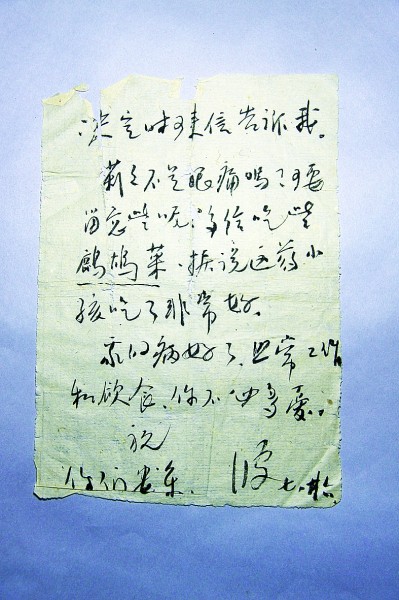 决定时可来信告诉我。
莉不是眼痛吗？可要
留意些呢？多给吃些
鹧鸪菜。据说这药小
孩吃了非常好。
我的病好了，照常工作
和饮食，你不必多忧。
祝
你们安乐。 波 七．廿六．